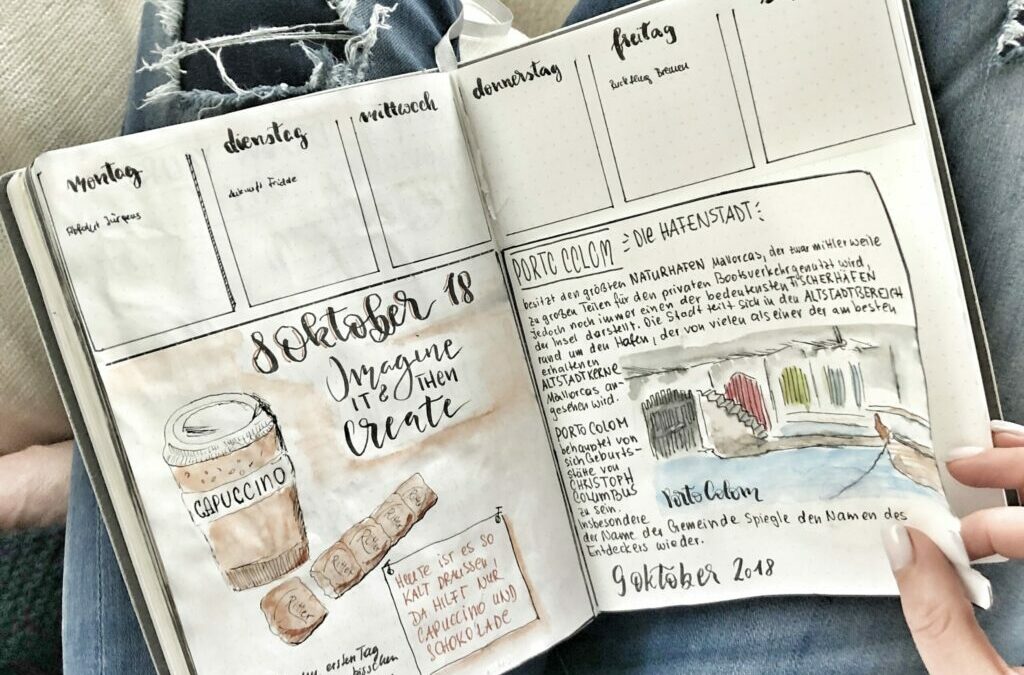 montag
Abfahrt Jürgens
dienstag
Ankunft
mittwoch
donnerstag
freitag
Rückflug Bremen
8 Oktober 18
Imagine
IT & THEN
Create
CAPUCCINO
Ritter
Ritter
Ritter
HEUTE IST ES SO
KALT DRAUSSEN!
DA HILFT NUR
CAPUCCINO UND
SCHOKOLADE
ersten Tag
bisschen
PORTO COLOM DIE HAFENSTADT
besitzt den größten NATURHAFEN Mallorcas, der zwar mittlerweile
zu großen Teilen für den privaten Bootsverkehr genutzt wird,
jedoch noch immer einen der bedeutensten FISCHERHÄFEN
der Insel darstellt. Die Stadt teilt sich in den ALTSTADTBEREICH
rund um den Hafen, der von vielen als einer der am besten
erhaltenen
ALTSTADTKERNE
Mallorcas an-
gesehen wird.
PORTO COLOM
behauptet von
sich Geburts-
stätte von
CHRISTOPH
COLUMBUS
zu sein.
Insbesondere
der Name der Gemeinde Spiegle den Namen des
Entdeckers wieder.
Porto Colom
9 Oktober 2018